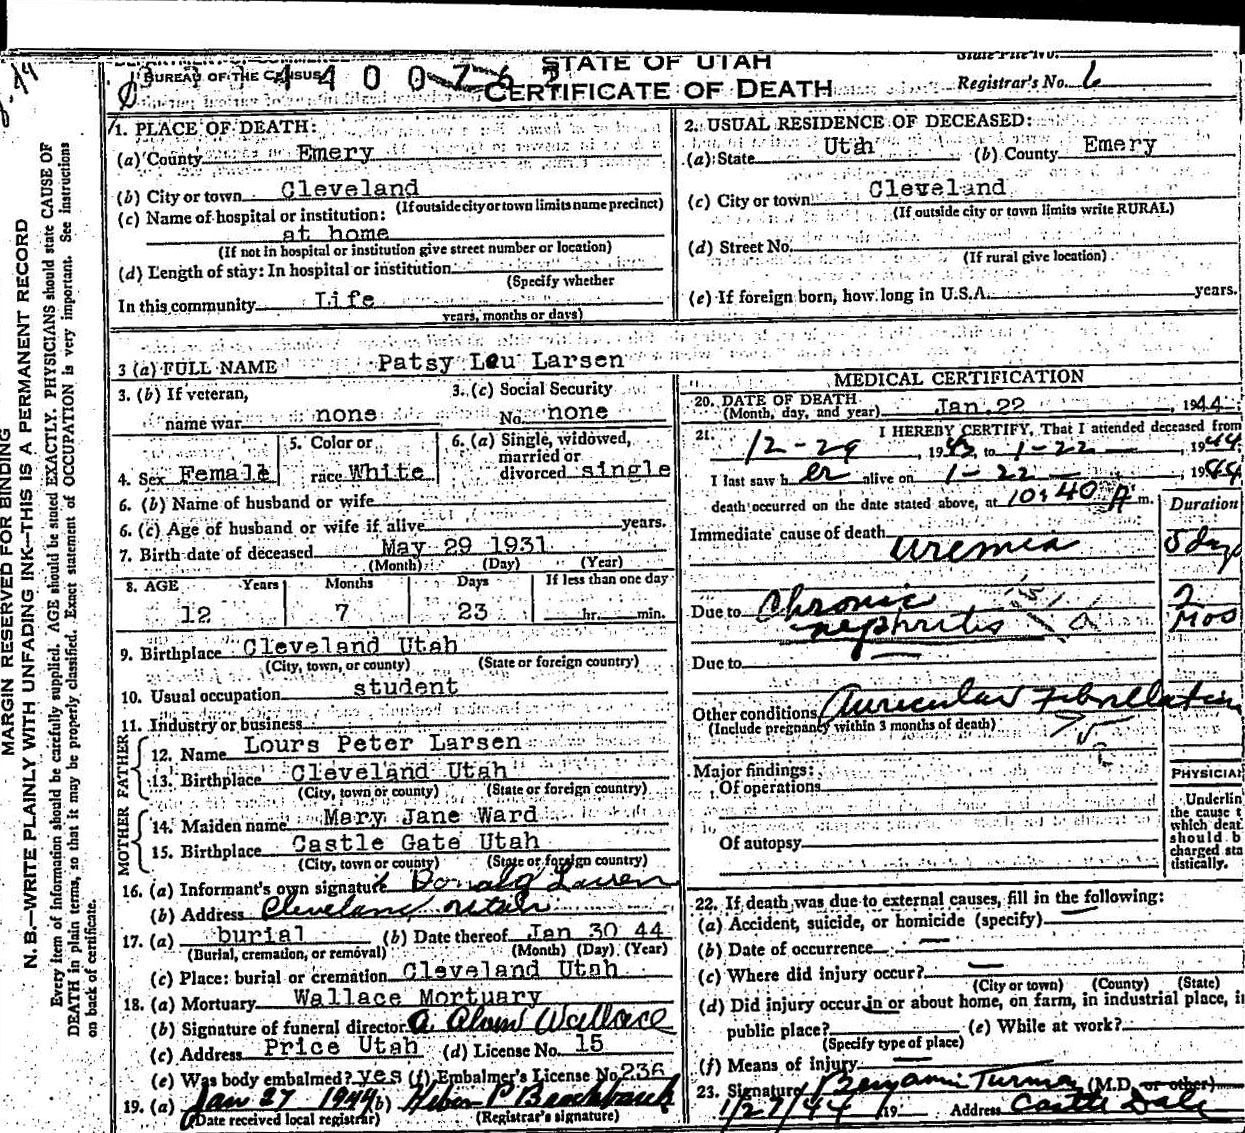 STATE OF UTAH
BUREAU OF THE CENSUS
CERTIFICATE OF DEATH
State File No.
Registrar's No. 6
1. PLACE OF DEATH:
(a) County Emery
(b) City or town Cleveland
(If outside city or town limits name precinct)
(c) Name of hospital or institution:
at home
(If not in hospital or institution give street number or location)
(d) Length of stay: In hospital or institution
(Specify whether
In this community Life
years, months or days)
2. USUAL RESIDENCE OF DECEASED:
(a) State Utah (b) County Emery
(c) City or town Cleveland
(If outside city or town limits write RURAL)
(d) Street No.
(If rural give location)
(e) If foreign born, how long in U.S.A. years.
3 (a) FULL NAME Patsy Lou Larsen
3. (b) If veteran, 3. (c) Social Security
name war none No. none
4. Sex Female 5. Color or race White 6. (a) Single, widowed, married or divorced single
6. (b) Name of husband or wife
6. (c) Age of husband or wife if alive years.
7. Birth date of deceased May 29 1931
(Month) (Day) (Year)
8. AGE Years Months Days If less than one day
12 7 23 hr. min.
9. Birthplace Cleveland Utah
(City, town, or county) (State or foreign country)
10. Usual occupation student
11. Industry or business
FATHER
12. Name Lours Peter Larsen
13. Birthplace Cleveland Utah
(City, town or county) (State or foreign country)
MOTHER
14. Maiden name Mary Jane Ward
15. Birthplace Castle Gate Utah
(City, town or county) (State or foreign country)
16. (a) Informant's own signature Donald Larsen
(b) Address Cleveland Utah
17. (a) burial (b) Date thereof Jan 30 44
(Burial, cremation, or removal) (Month) (Day) (Year)
(c) Place: burial or cremation Cleveland Utah
18. (a) Mortuary Wallace Mortuary
(b) Signature of funeral director A. Wallace
(c) Address Price Utah (d) License No. 15
(e) Was body embalmed? yes (f) Embalmer's License No 236
19. (a) Jan 27 1944 (b) Heber P
(Date received local registrar) (Registrar's signature)
MEDICAL CERTIFICATION
20. DATE OF DEATH
(Month, day, and year) Jan. 22, 1944
21. I HEREBY CERTIFY, That I attended deceased from
12-29, 1943, to 1-22, 1944
I last saw h er alive on 1-22, 1944
death occurred on the date stated above, at 10:40 A m.
Duration
Immediate cause of death uremia 5 days
Due to Chronic nephritis 2 mos
Due to
Other conditions Auricular Fibrillation
(Include pregnancy within 3 months of death)
Major findings:
Of operations
Of autopsy
PHYSICIAN
Underlin
the cause t
which deat
should b
charged sta
tistically.
22. If death was due to external causes, fill in the following:
(a) Accident, suicide, or homicide (specify)
(b) Date of occurrence
(c) Where did injury occur?
(City or town) (County) (State)
(d) Did injury occur in or about home, on farm, in industrial place, i
public place? (e) While at work?
(Specify type of place)
(f) Means of injury
23. Signature Benjamin (M.D. or other)
1/27/44 19 Address Castle Dale
MARGIN RESERVED FOR BINDING
N. B.—WRITE PLAINLY WITH UNFADING INK—THIS IS A PERMANENT RECORD
Every item of information should be carefully supplied. AGE should be stated EXACTLY. PHYSICIANS should state CAUSE OF
DEATH in plain terms, so that it may be properly classified. Exact statement of OCCUPATION is very important. See instructions
on back of certificate.